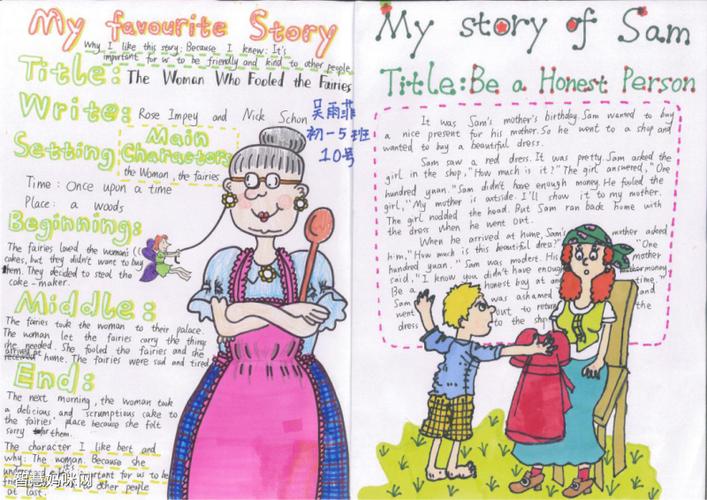 My favourite Story
Why I like this story: Because I knew: It's
important for w to be friendly and kind to other people
Title: The Woman Who Fooled the Fairies
Write: Rose Impey and Nick Schon
吴雨菲
初一5班
10号
Setting
Main
Characters
the Woman, the fairies
Time: Once upon a time
Place: a woods
Beginning:
The fairies loved the woman's
cakes, but they didn't want to buy
them. They decided to steal the
cake-maker.
Middle:
The fairies took the woman to their palace.
The woman let the fairies carry the thing
she needed. She fooled the fairies and she
arrived at home. The fairies were sad and tired
End:
The next morning, the woman took
a delicious and scrumptious cake to
the fairies' place because she felt
sorry for them.
The character I like best and
why: The woman. Because she
important for us to be
other people
at last.
智慧妈咪网
My story of Sam
Title: Be a Honest Person
It was Sam's mother's birthday. Sam wanted to buy
a nice present for his mother. So he went to a shop and
wanted to buy a beautiful dress.
Sam saw a red dress. It was pretty. Sam asked the
girl in the shop, "How much is it?" The girl answered, "One
hundred yuan." Sam didn't have enough money. He fooled the
girl, "My mother is outside. I'll show it to my mother.
The girl nodded the head. But Sam ran back home with
the dress when he went out.
When he arrived at home, Sam's mother asked
him, "How much is this beautiful dress?" "One
hundred yuan." Sam was modert. His mother
said, "I know you didn't have enough money
Be a honest boy at any time."
Sam was ashamed and
went out to return the
dress to the shop